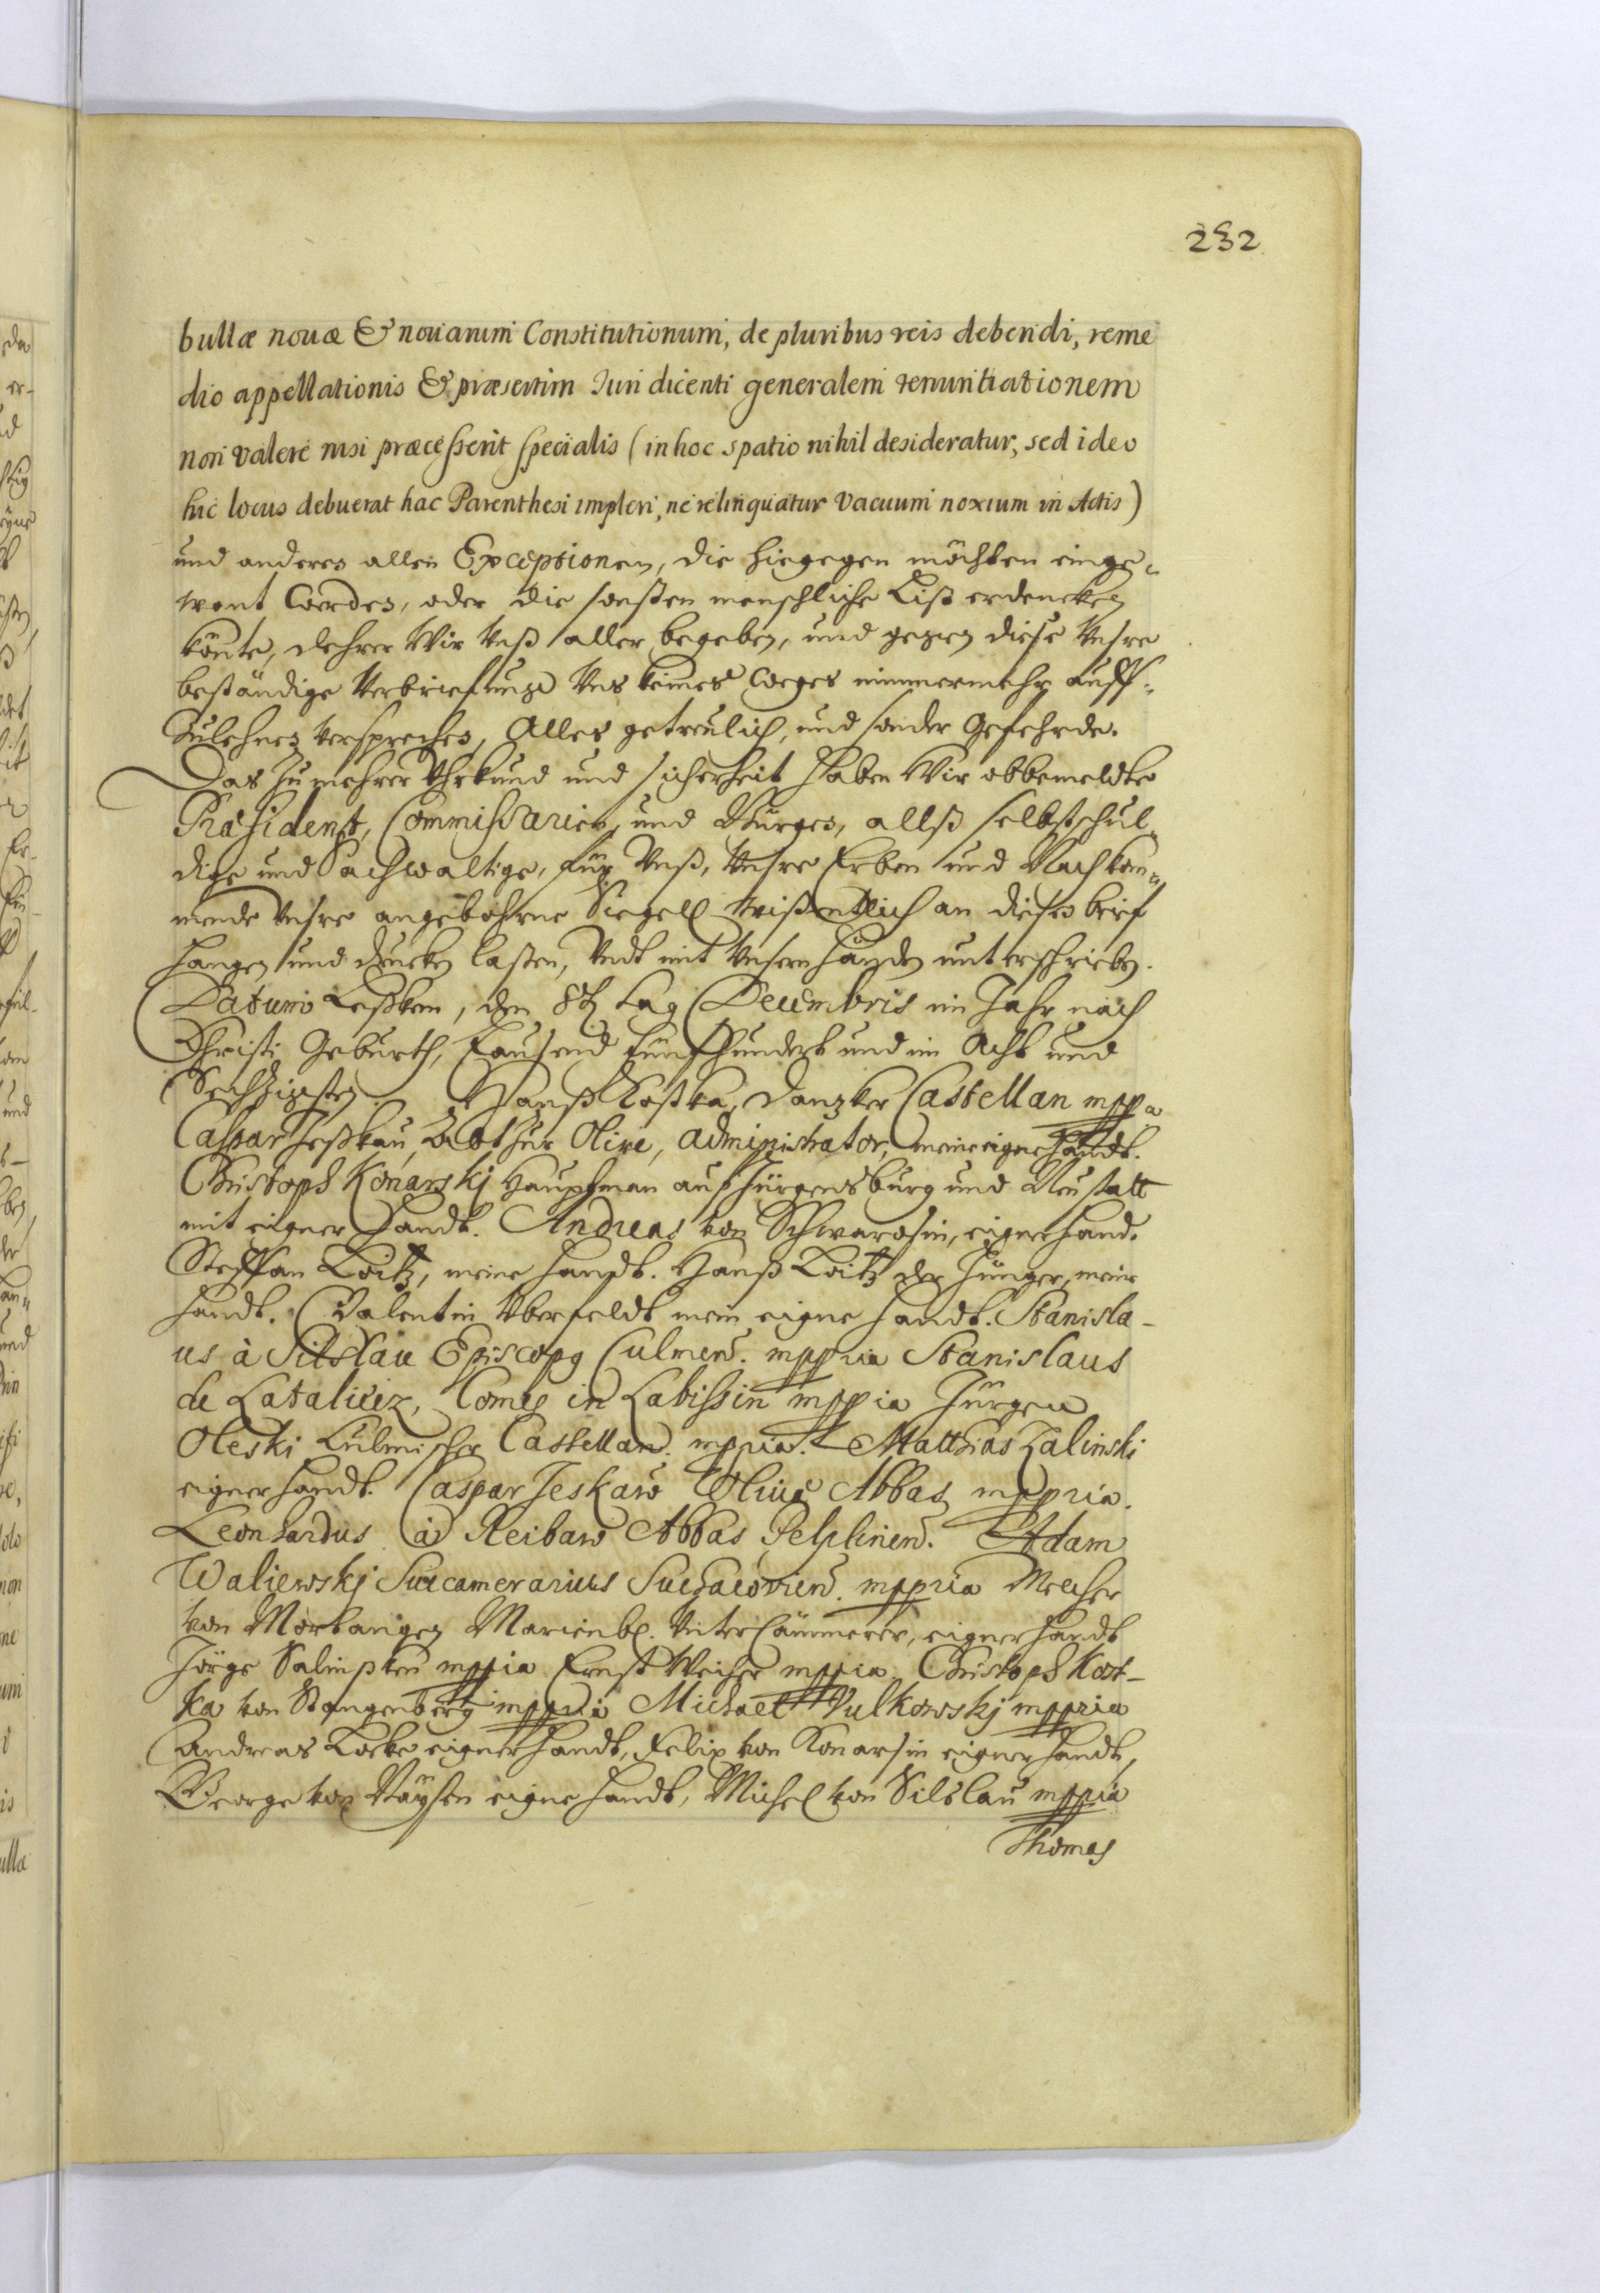 232
bullæ novæ & novarum Constitutionum, de pluribus reis debendi, reme
dio appellationis & præsertim Iuri dicenti generalem renuntiationem
non valere nisi præcesserit specialis (in hoc spatio nihil desideratur, sed ideo
hic locus debuerat hac Parenthesi impleri, ne relinquatur vacuum noxium in Actis)
und anderen allen Exceptionen, die hiegegen möchten einge-
want werden, oder die sonsten menschliche List erdencken
könte, dehrer Wir Unß aller begeben, und gegen diese Unsre
beständige Verbriefunge Uns keines weges nimmermehr auff-
zulehnen versprechen, Alles getreulich, und sonder Gefehrde.
Das zu mehrer Uhrkund und sicherheit haben Wir obbemeldte
Præsident, Commissarien, und Bürgen, allß selbstschul-
dige und Sachwaltige, für Unß, Unsre Erben und Nachkom-
mende Unsre angebohrne Siegell wißentlich an diesen brief
hangen und drucken lassen, Undt mit Unsern händen unterschrieben.
Datum Leßken, den 8t tag Decembris im Jahr nach
Christi Geburth, Tausend fünffhundert und im Acht und
Sechzigsten. Hanß Koßka, Danzker Castellan mppa
Caspar Jeßkau, Abt zur Olive, administrator, meine eigne handt.
Christoph Konarskj Hauptman auf Hürgensburg und Neustatt
mit eigner handt. Andreas von Schwarosin, eigner hand.
Steffan Loitz, meine handt. Hanß Loitz der Jünger, meine
handt. Valentin Uberfeldt mein eigne handt. Stanisla-
us à Silslau Episcopg Culmens. mppria Stanislaus
de Latalicz, Comes in Labissin mppia Jürgen
Oleski Culmischer Castellan. mppria. Matthias Zalinski
eigner handt. Caspar Jeskaw Olivæ Abbas mppria.
Leonhardus à Reibaw Abbas Pelplinens. Adam
Waliewskj Succamerarius Suchaconiens. mppria Melcher
von Mortangen Marienb. Untercämmerer, eigner handt
Jörge Salinsken mppia Ernst Weiher mppia. Christoph Kost-
ka von Stangenberg mppria Michael Vulkowskj mppria
Andreas Locke eigner handt, Felix von Konarsin eigner handt,
George von Baysen eigne handt, Michel von Silslau mppia
Thomas